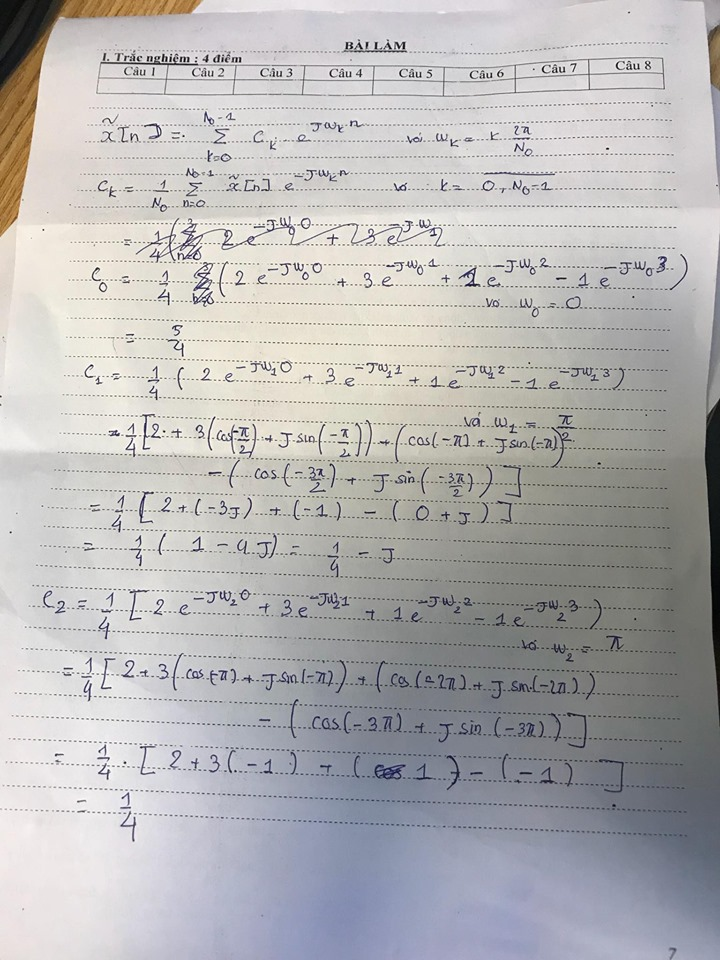 BÀI LÀM
I. Trắc nghiệm : 4 điểm
Câu 1 Câu 2 Câu 3 Câu 4 Câu 5 Câu 6 Câu 7 Câu 8
x̃[n] = Σ_{k=0}^{N₀-1} C_k e^{Jω_k n} với ω_k = k 2π/N₀
C_k = 1/N₀ Σ_{n=0}^{N₀-1} x̃[n] e^{-Jω_k n} với k = 0, N₀-1
= 1/4 ( 2 e^{-Jω₀0} + 3 e^{-Jω1}
C₀ = 1/4 ( 2 e^{-Jω₀0} + 3 e^{-Jω₀1} + 1 e^{-Jω₀2} - 1 e^{-Jω₀3} )
với ω₀ = 0
= 5/4
C₁ = 1/4 ( 2 e^{-Jω₁0} + 3 e^{-Jω₁1} + 1 e^{-Jω₁2} - 1 e^{-Jω₁3} )
với ω₁ = π/2
= 1/4 [ 2 + 3 ( cos(-π/2) + J sin(-π/2) ) + ( cos(-π) + J sin(-π) )
- ( cos(-3π/2) + J sin(-3π/2) ) ]
= 1/4 [ 2 + (-3J) + (-1) - ( 0 + J ) ]
= 1/4 ( 1 - 4J ) = 1/4 - J
C₂ = 1/4 [ 2 e^{-Jω₂0} + 3 e^{-Jω₂1} + 1 e^{-Jω₂2} - 1 e^{-Jω₂3} )
với ω₂ = π
= 1/4 [ 2 + 3 ( cos(-π) + J sin(-π) ) + ( cos(-2π) + J sin(-2π) )
- ( cos(-3π) + J sin(-3π) ) ]
= 1/4 . [ 2 + 3 (-1) + ( 1 ) - (-1) ]
= 1/4
7